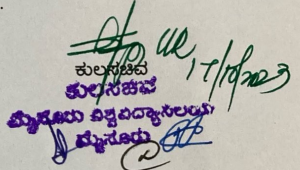 17/10/2023
ಕುಲಸಚಿವ
ಕುಲಸಚಿವ
ಮೈಸೂರು ವಿಶ್ವವಿದ್ಯಾನಿಲಯ
ಮೈಸೂರು